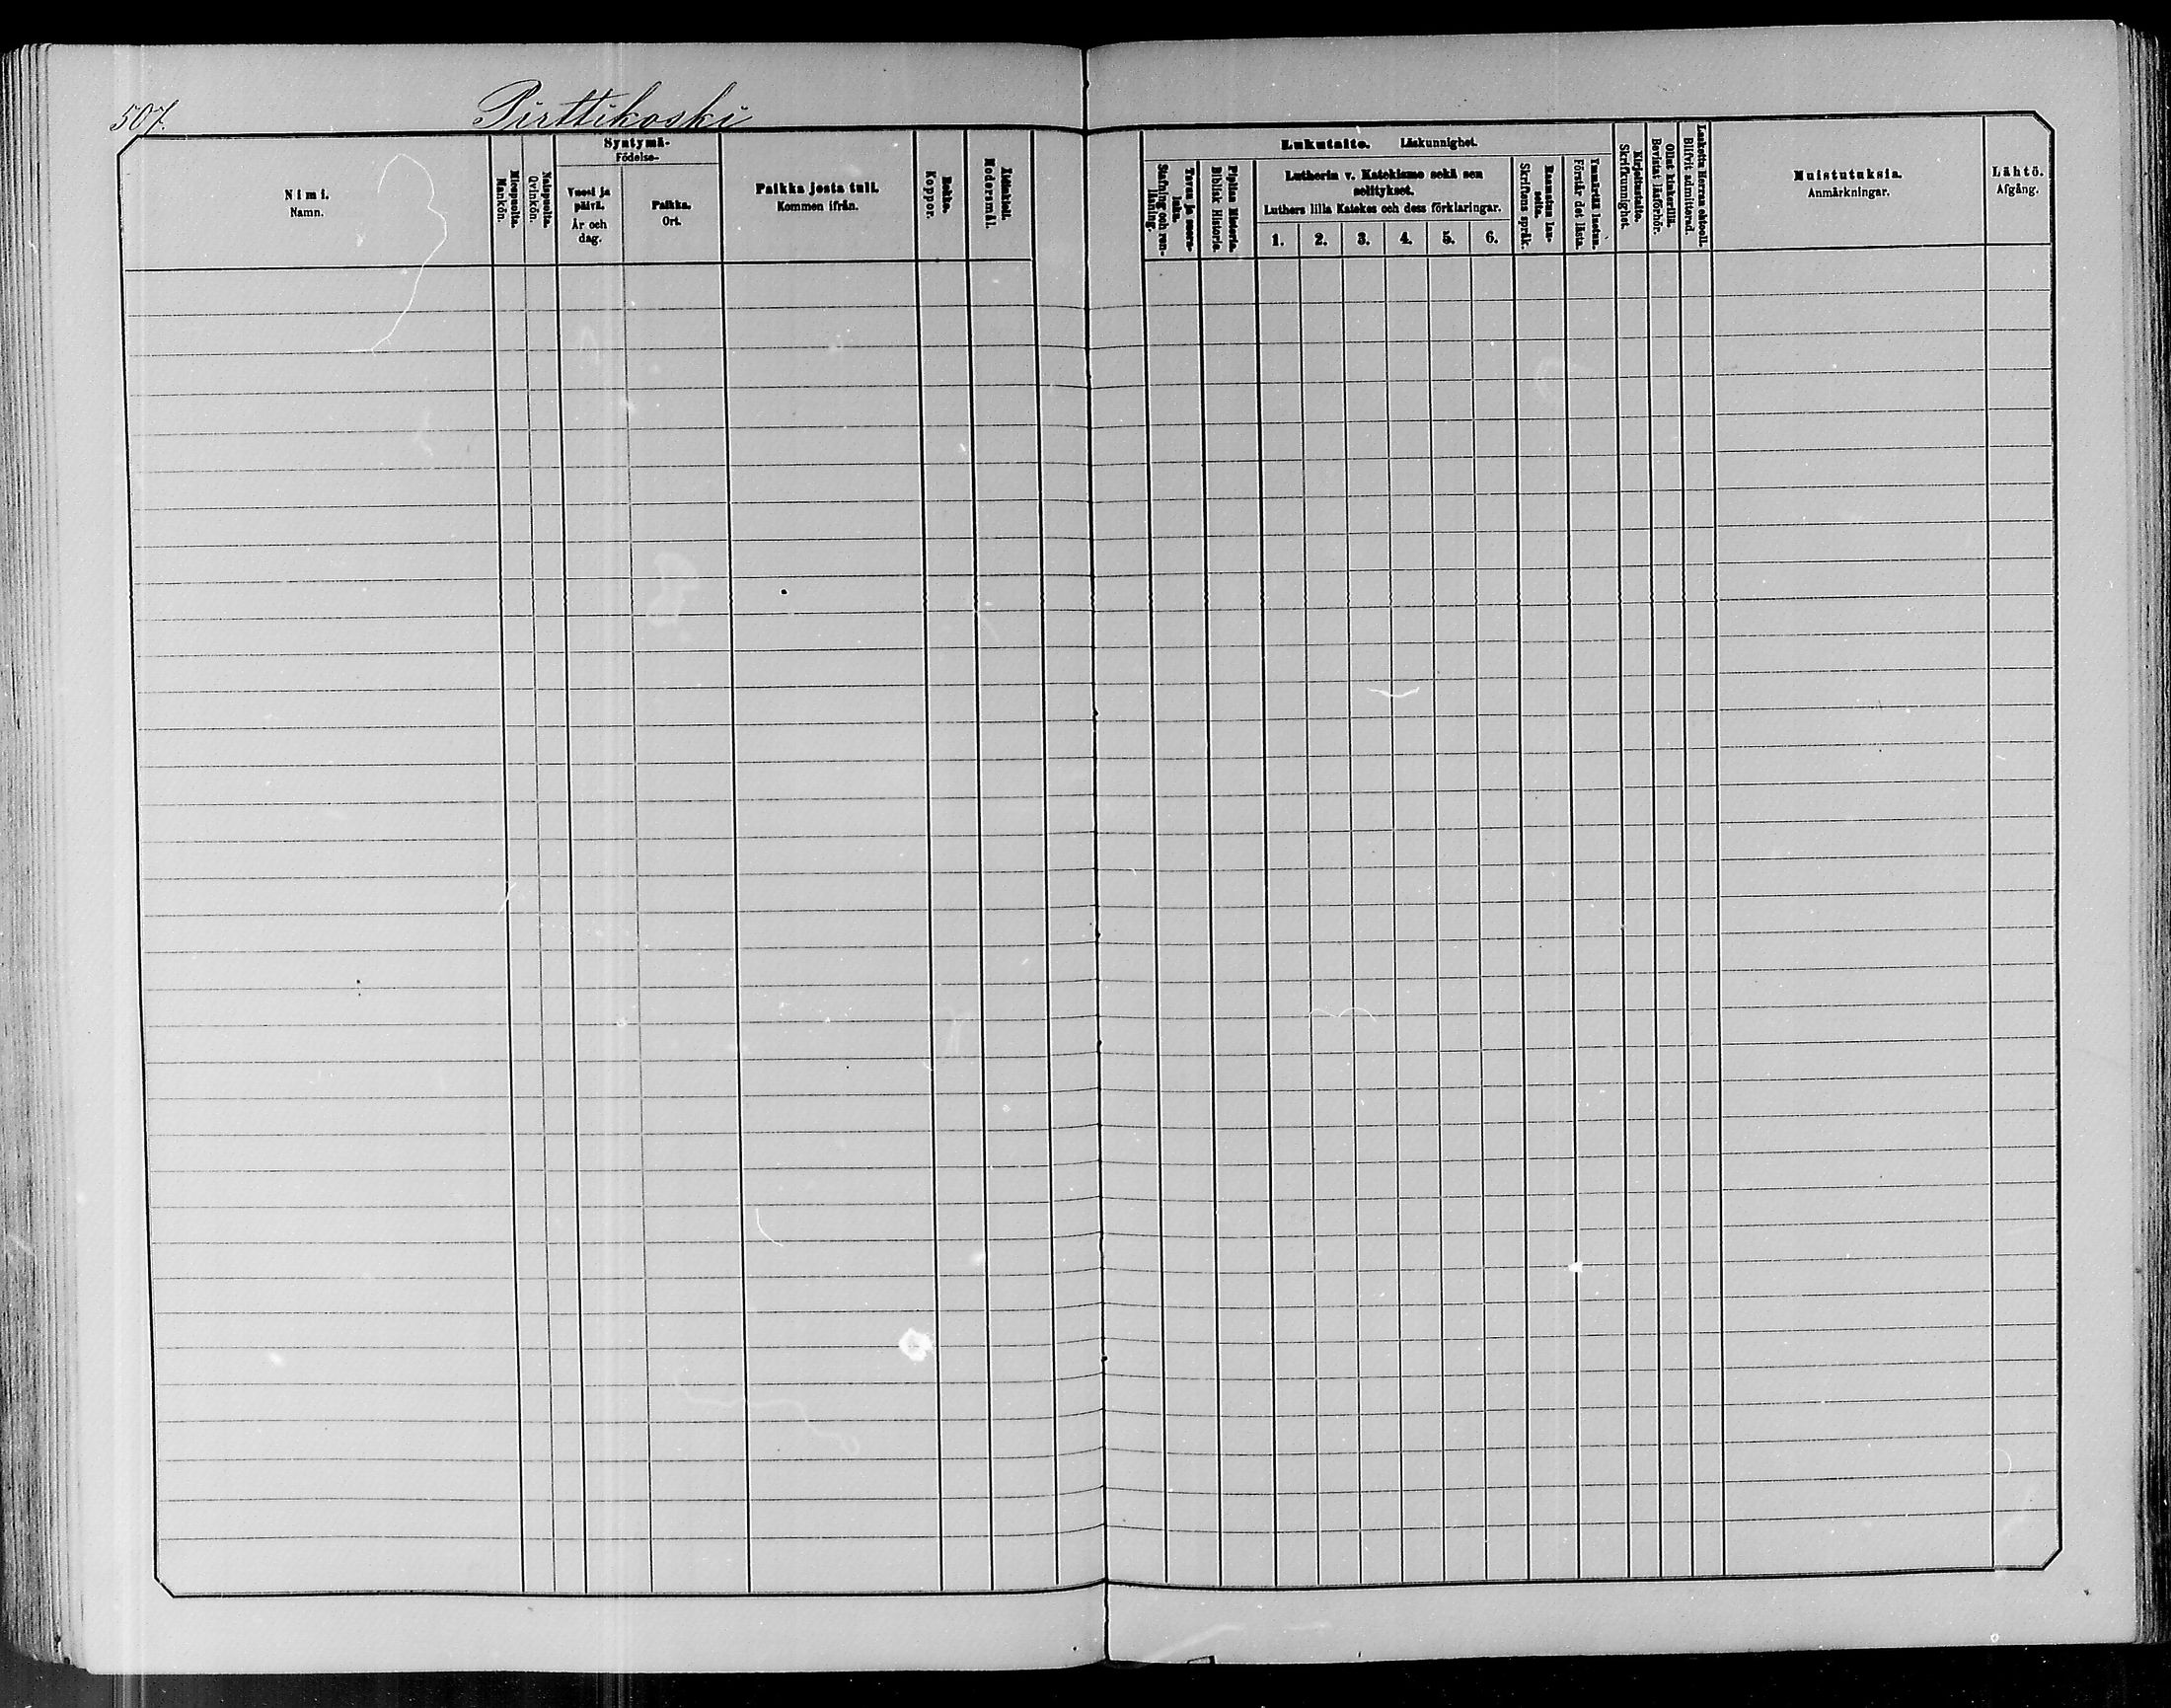 507.
Pirttikoski
Nimi.
Namn.
Miespuolia.
Mankön.
Naispuolia.
Qvinkön.
Syntymä-
Födelse-
Vuosi ja
päivä.
År och
dag.
Paikka.
Ort.
Paikka josta tuli.
Kommen ifrån.
Rokko.
Koppor.
Äidinkieli.
Modersmål.
Lukutaito. Läskunnighet.
Tavau ja suora
luku.
Stafning och ren-
läsning.
Piplian Historia.
Biblisk Historia.
Lutherin v. Katekismo sekä sen
selitykset.
Luthers lilla Katekes och dess förklaringar.
1. 2. 3. 4. 5. 6.
Raamatun lau-
seita.
Skriftens språk.
Ymmärtää luetun.
Förstår det lästa.
Kirjoitustaito.
Skrifkunnighet.
Ollut kinkerillä.
Bevistat läsförhör.
Laskettu Herran ehtooll.
Blifvit admitterad.
Muistutuksia.
Anmärkningar.
Lähtö.
Afgång.